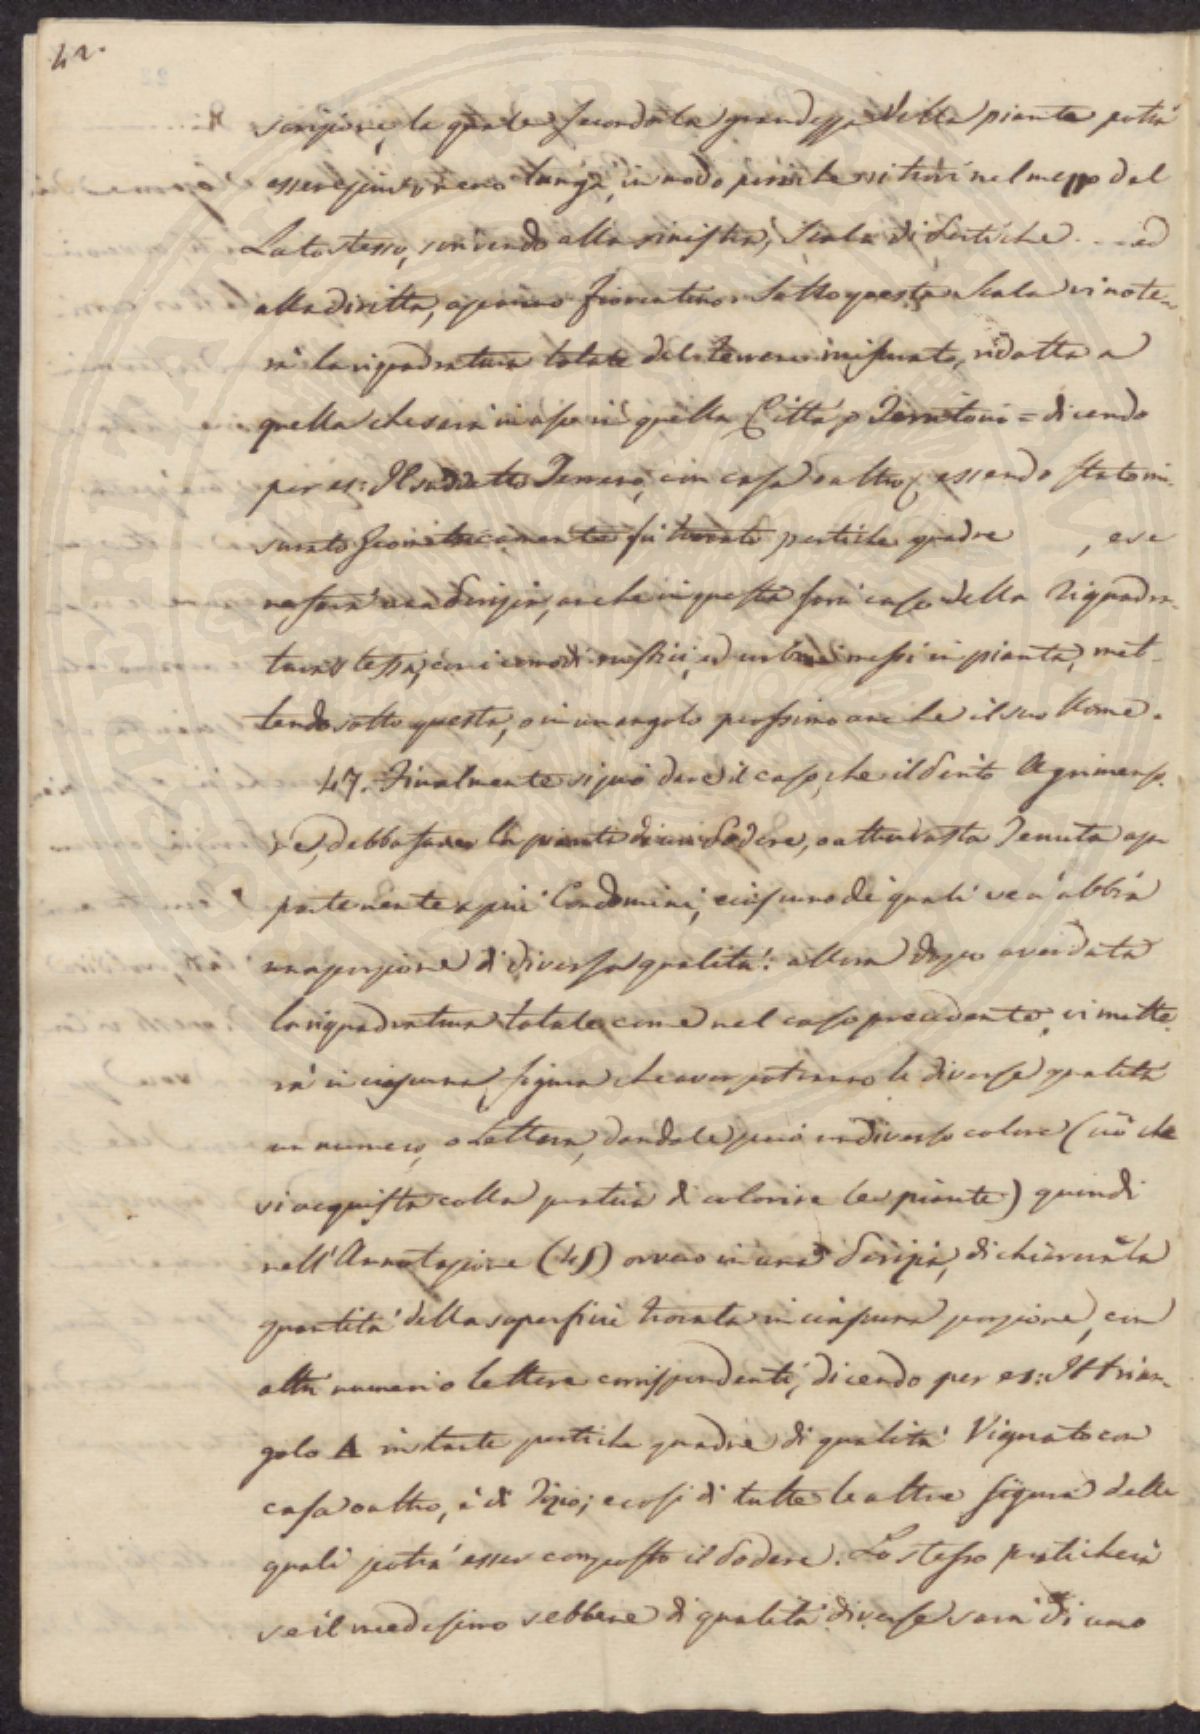 42.
scrizione, la quale secondo la grandezza della pianta potrà
essere più o meno lunga, in modo perciò che si trovi nel mezzo del
Lato stesso, scrivendo alla sinistra, Scala di Pertiche .... ed
alla diritta, a Sotto questa Scala vi note-
rà la riquadratura totale del terreno misurato, ridotta a
quella che sarà in uso in quella Città, o Territorio = dicendo
per es: Il suddetto Terreno, con casa o altro, essendo stato mi-
surato Geometricamente fù trovato pertiche quadre , e se
ne farà una anche in questa farà caso della riquadra-
tura stessa, con i comodi rustici, ed urbani messi in pianta, met-
tendo sotto questa, o in un angolo prossimo anche il suo Nome.
47. Finalmente si può dare il caso, che il Perito Agrimenso-
re, debba fare la pianta di un Podere, o altra vasta Tenuta ap-
partenente a più Condomini, ciascuno de quali ve n'abbia
una porzione di diversa qualità: allora dopo aver data
la riquadratura totale come nel caso precedente, vi mette-
rà in ciascuna figura che aver potranno le diverse qualità
un numero, o Lettera, dandole però un diverso colore (ciò che
si acquista colla pratica di colorire le piante) quindi
nell'Annotazione (45) ovvero in una dichiarerà la
quantità della superficie trovata in ciascuna porzione, con
altri numeri o lettere corrispondenti, dicendo per es: Il trian-
golo A in tante pertiche quadre di qualità Vignato con
casa o altro, è di Tizio; e così di tutte le altre figure delle
quali potrà esser composto il Podere. Lo stesso praticherà
se il medesimo sebbene di qualità diverse sarà di uno